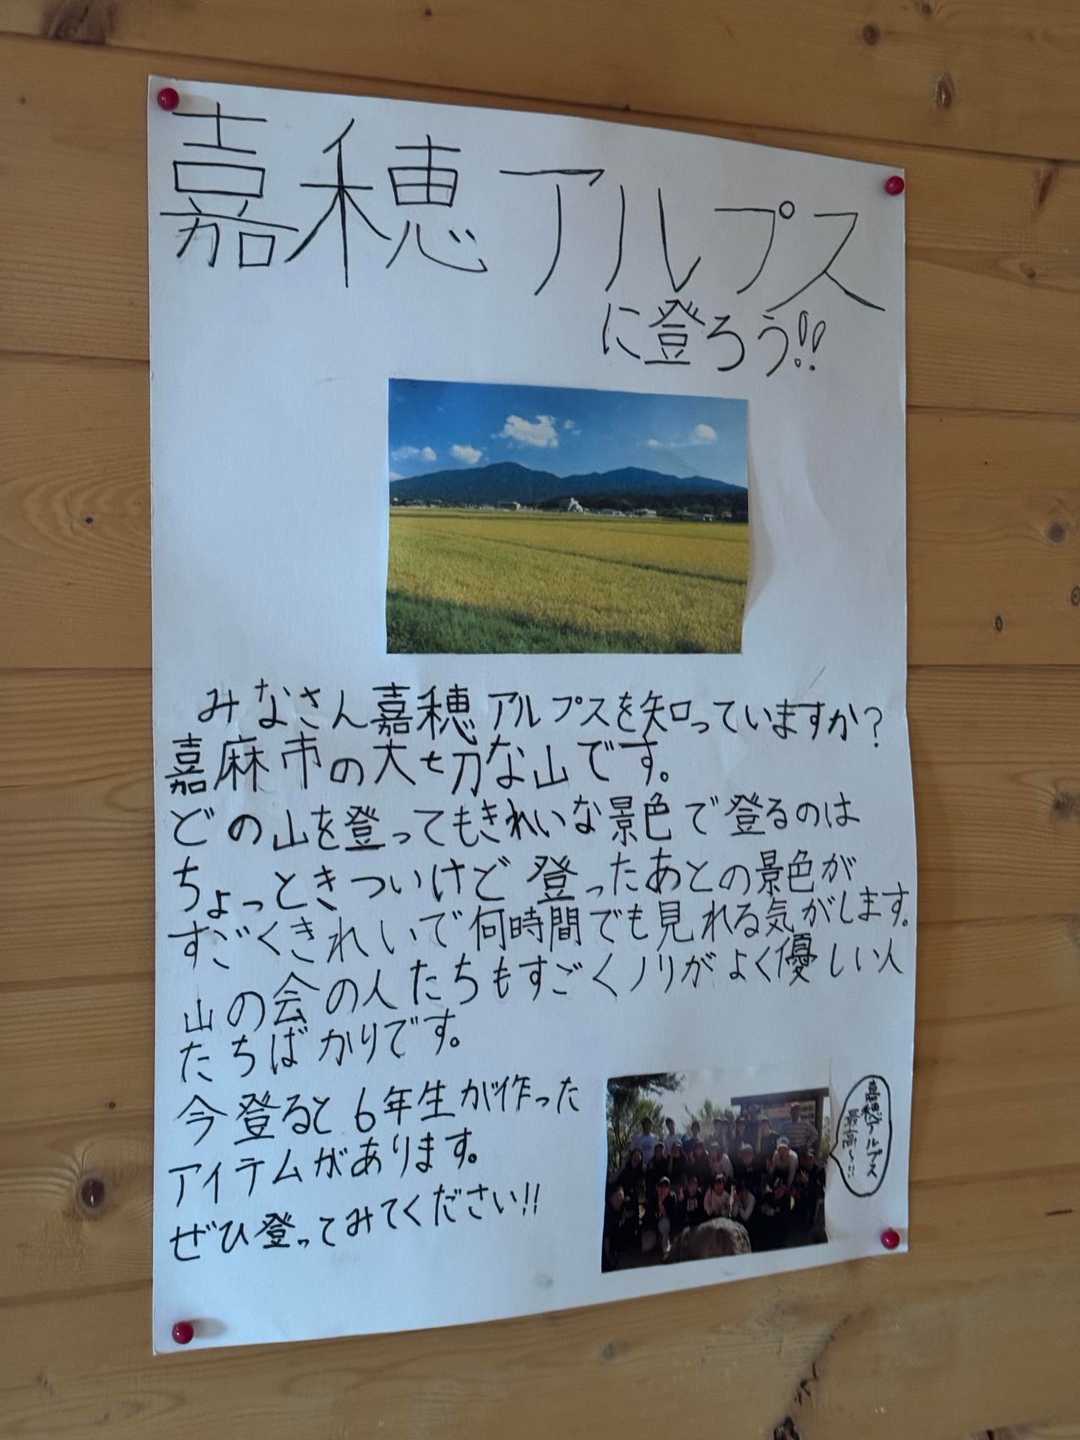 嘉穂アルプス
に登ろう!!
みなさん嘉穂アルプスを知っていますか?
嘉麻市の大切な山です。
どの山を登ってもきれいな景色で登るのは
ちょっときついけど登ったあとの景色が
すごくきれいで何時間でも見れる気がします。
山の会の人たちもすごくノリがよく優しい人
たちばかりです。
今登ると6年生が作った
アイテムがあります。
ぜひ登ってみてください!!
嘉穂アルプス
最高〜!!